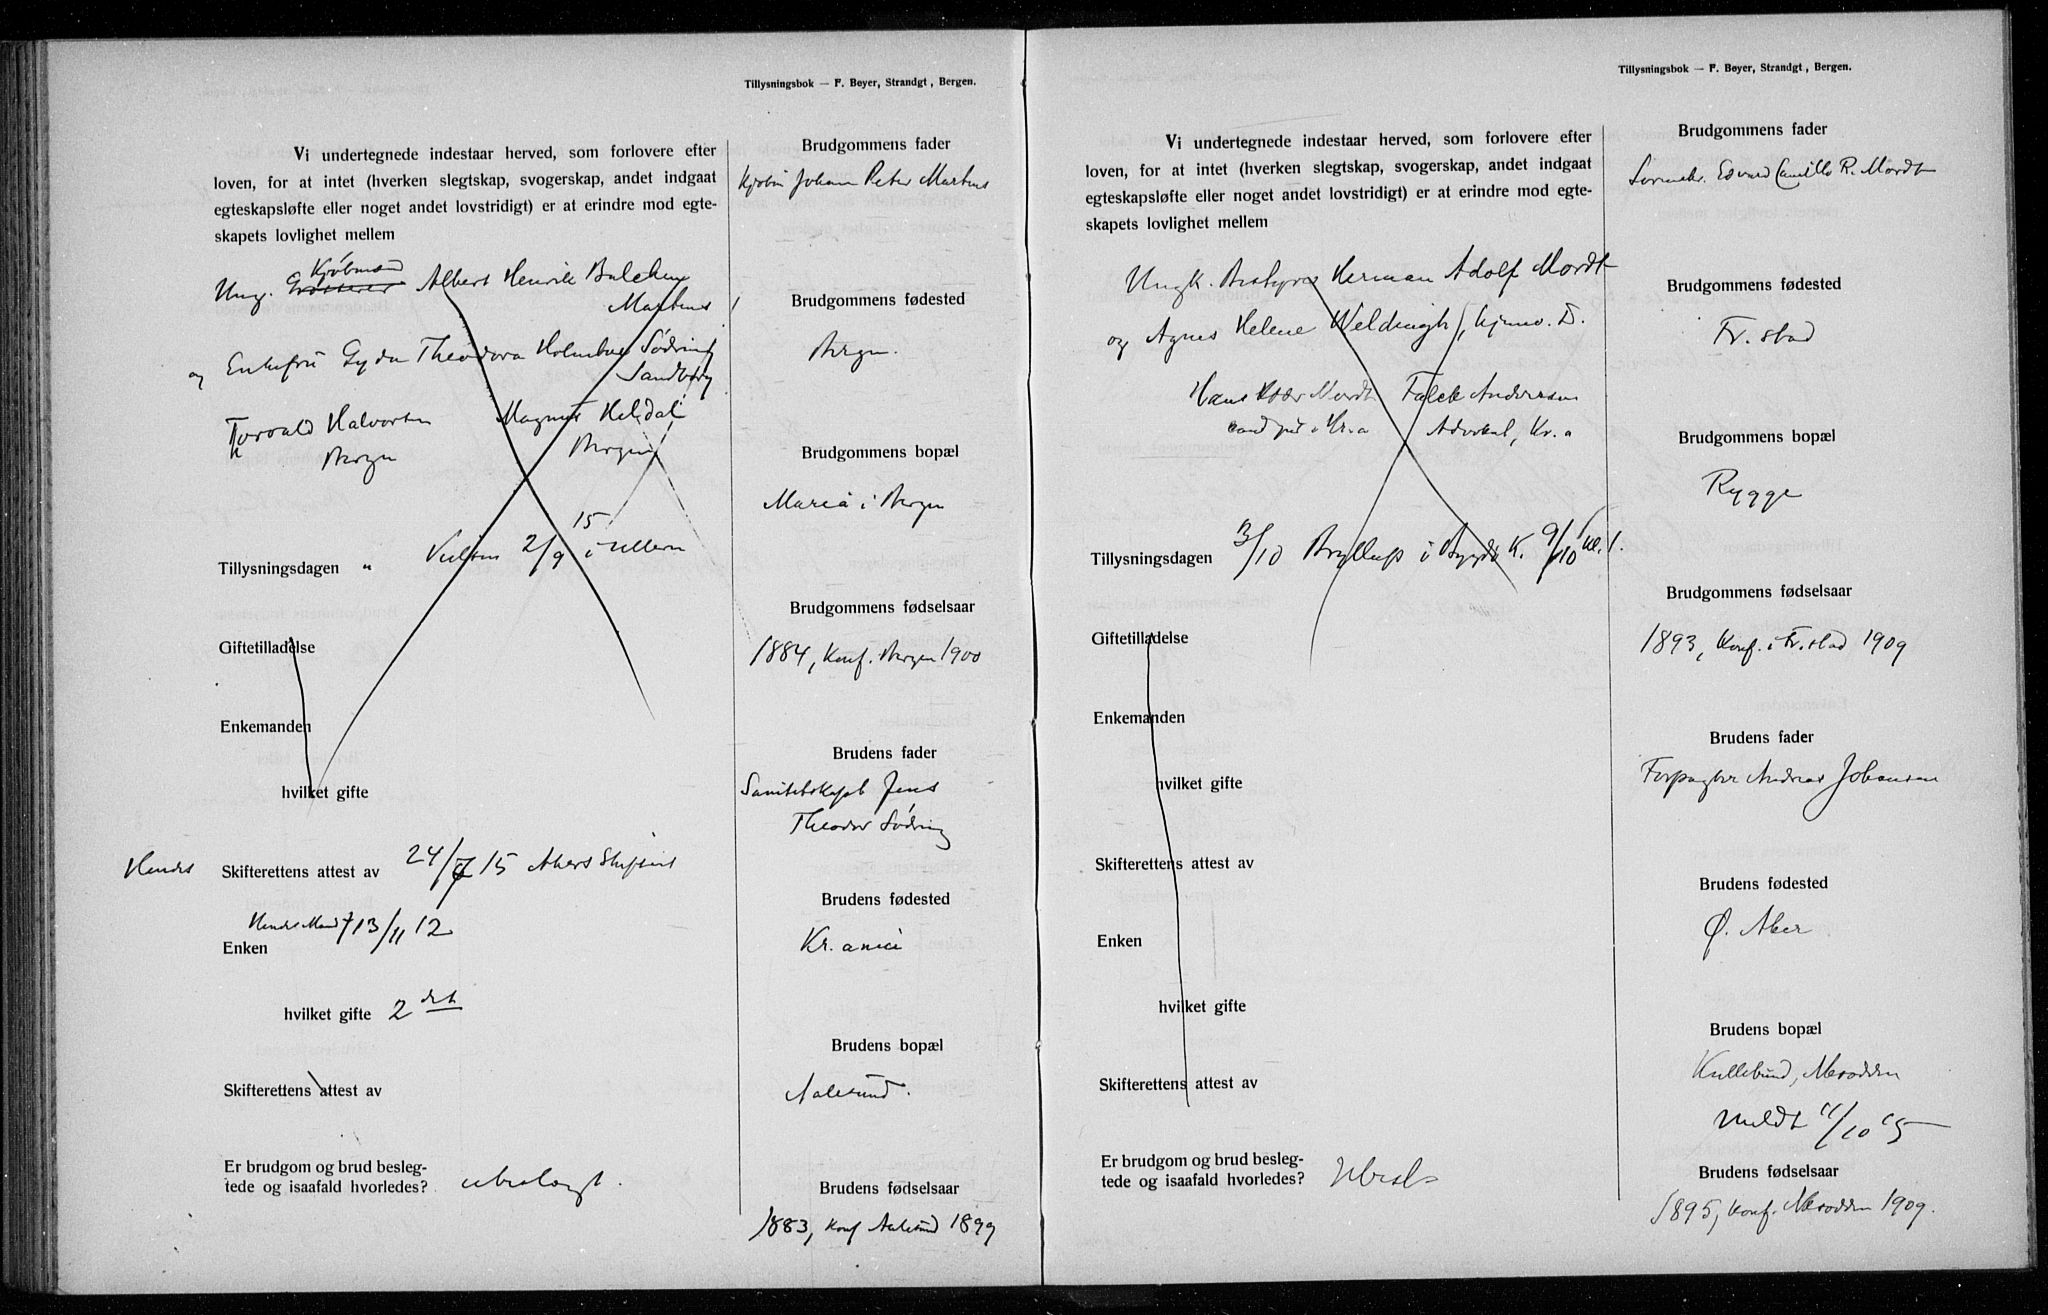 Tillysningsbok — F. Beyer, Strandgt, Bergen.
Vi undertegnede indestaar herved, som forlovere efter
loven, for at intet (hverken slegtskap, svogerskap, andet indgaat
egteskapsløfte eller noget andet lovstridigt) er at erindre mod egte-
skapets lovlighet mellem
Kjøbmand
Ung. Grosserer Albert Henrik Balchen
Martens
og Enkefru Gyda Theodora Holmboe Södring
Sandborg
Torvald Halvorsen Magnus Heldal
Bergen Bergen
Tillysningsdagen " Vielsen 2/9 15 i Ullern
Giftetilladelse
Enkemanden
hvilket gifte
Hendes Skifterettens attest av 24/ 15 Akers Skifteret
Hendes Mand † 13/11 12
Enken
hvilket gifte 2 det
Skifterettens attest av
Er brudgom og brud besleg-
tede og isaafald hvorledes? ubeslægt.
Brudgommens fader
Kjøbm Johan Peter Martens
Brudgommens fødested
Bergen.
Brudgommens bopæl
Maria i Bergen
Brudgommens fødselsaar
1884, Konf. Bergen 1900
Brudens fader
Sanitetskapt Jens
Theodor Södring
Brudens fødested
Kr.ania
Brudens bopæl
Aalesund.
Brudens fødselsaar
1883, Konf Aalesund 1899
Tillysningsbok — F. Beyer, Strandgt, Bergen.
Vi undertegnede indestaar herved, som forlovere efter
loven, for at intet (hverken slegtskap, svogerskap, andet indgaat
egteskapsløfte eller noget andet lovstridigt) er at erindre mod egte-
skapets lovlighet mellem
Ungk. Bestyrer Herman Adolf Mordt
og Agnes Helene Weldingh, hjemv. D.
Hans Mordt Falck Andersen
Kr.a Advokat, Kr.a
Tillysningsdagen 3/10 Bryllup i Bygdø K. 9/10 kl. 1.
Giftetilladelse
Enkemanden
hvilket gifte
Skifterettens attest av
Enken
hvilket gifte
Skifterettens attest av
Er brudgom og brud besleg-
tede og isaafald hvorledes? Ubesl.
Brudgommens fader
Edvard Camillo R. Mordt
Brudgommens fødested
Fr.stad
Brudgommens bopæl
Rygge
Brudgommens fødselsaar
1893, Konf. i Fr.stad 1909
Brudens fader
Forpagter Andreas Johansen
Brudens fødested
Ø. Aker
Brudens bopæl
Nesodden
Meldt 11/10 15
Brudens fødselsaar
1895, Konf. Nesodden 1909.